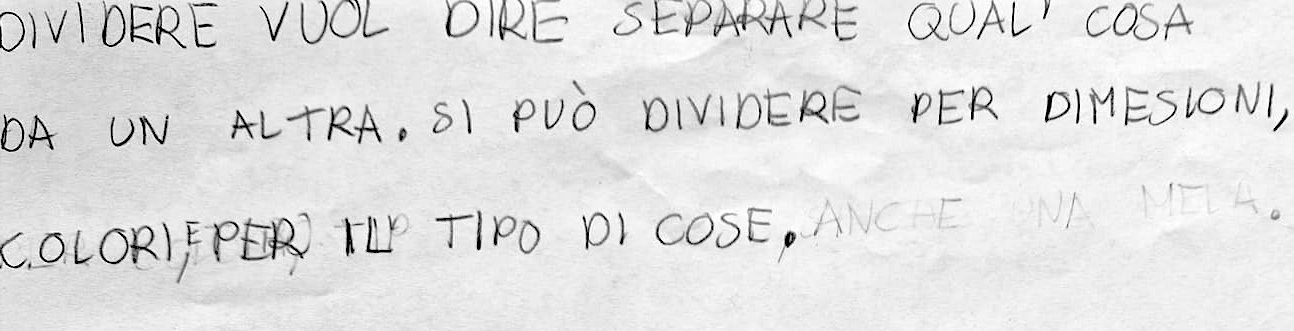 DIVIDERE VUOL DIRE SEPARARE QUAL' COSA
DA UN ALTRA. SI PUÒ DIVIDERE PER DIMESIONI,
COLORI, E PER IL TIPO DI COSE, ANCHE UNA MELA.